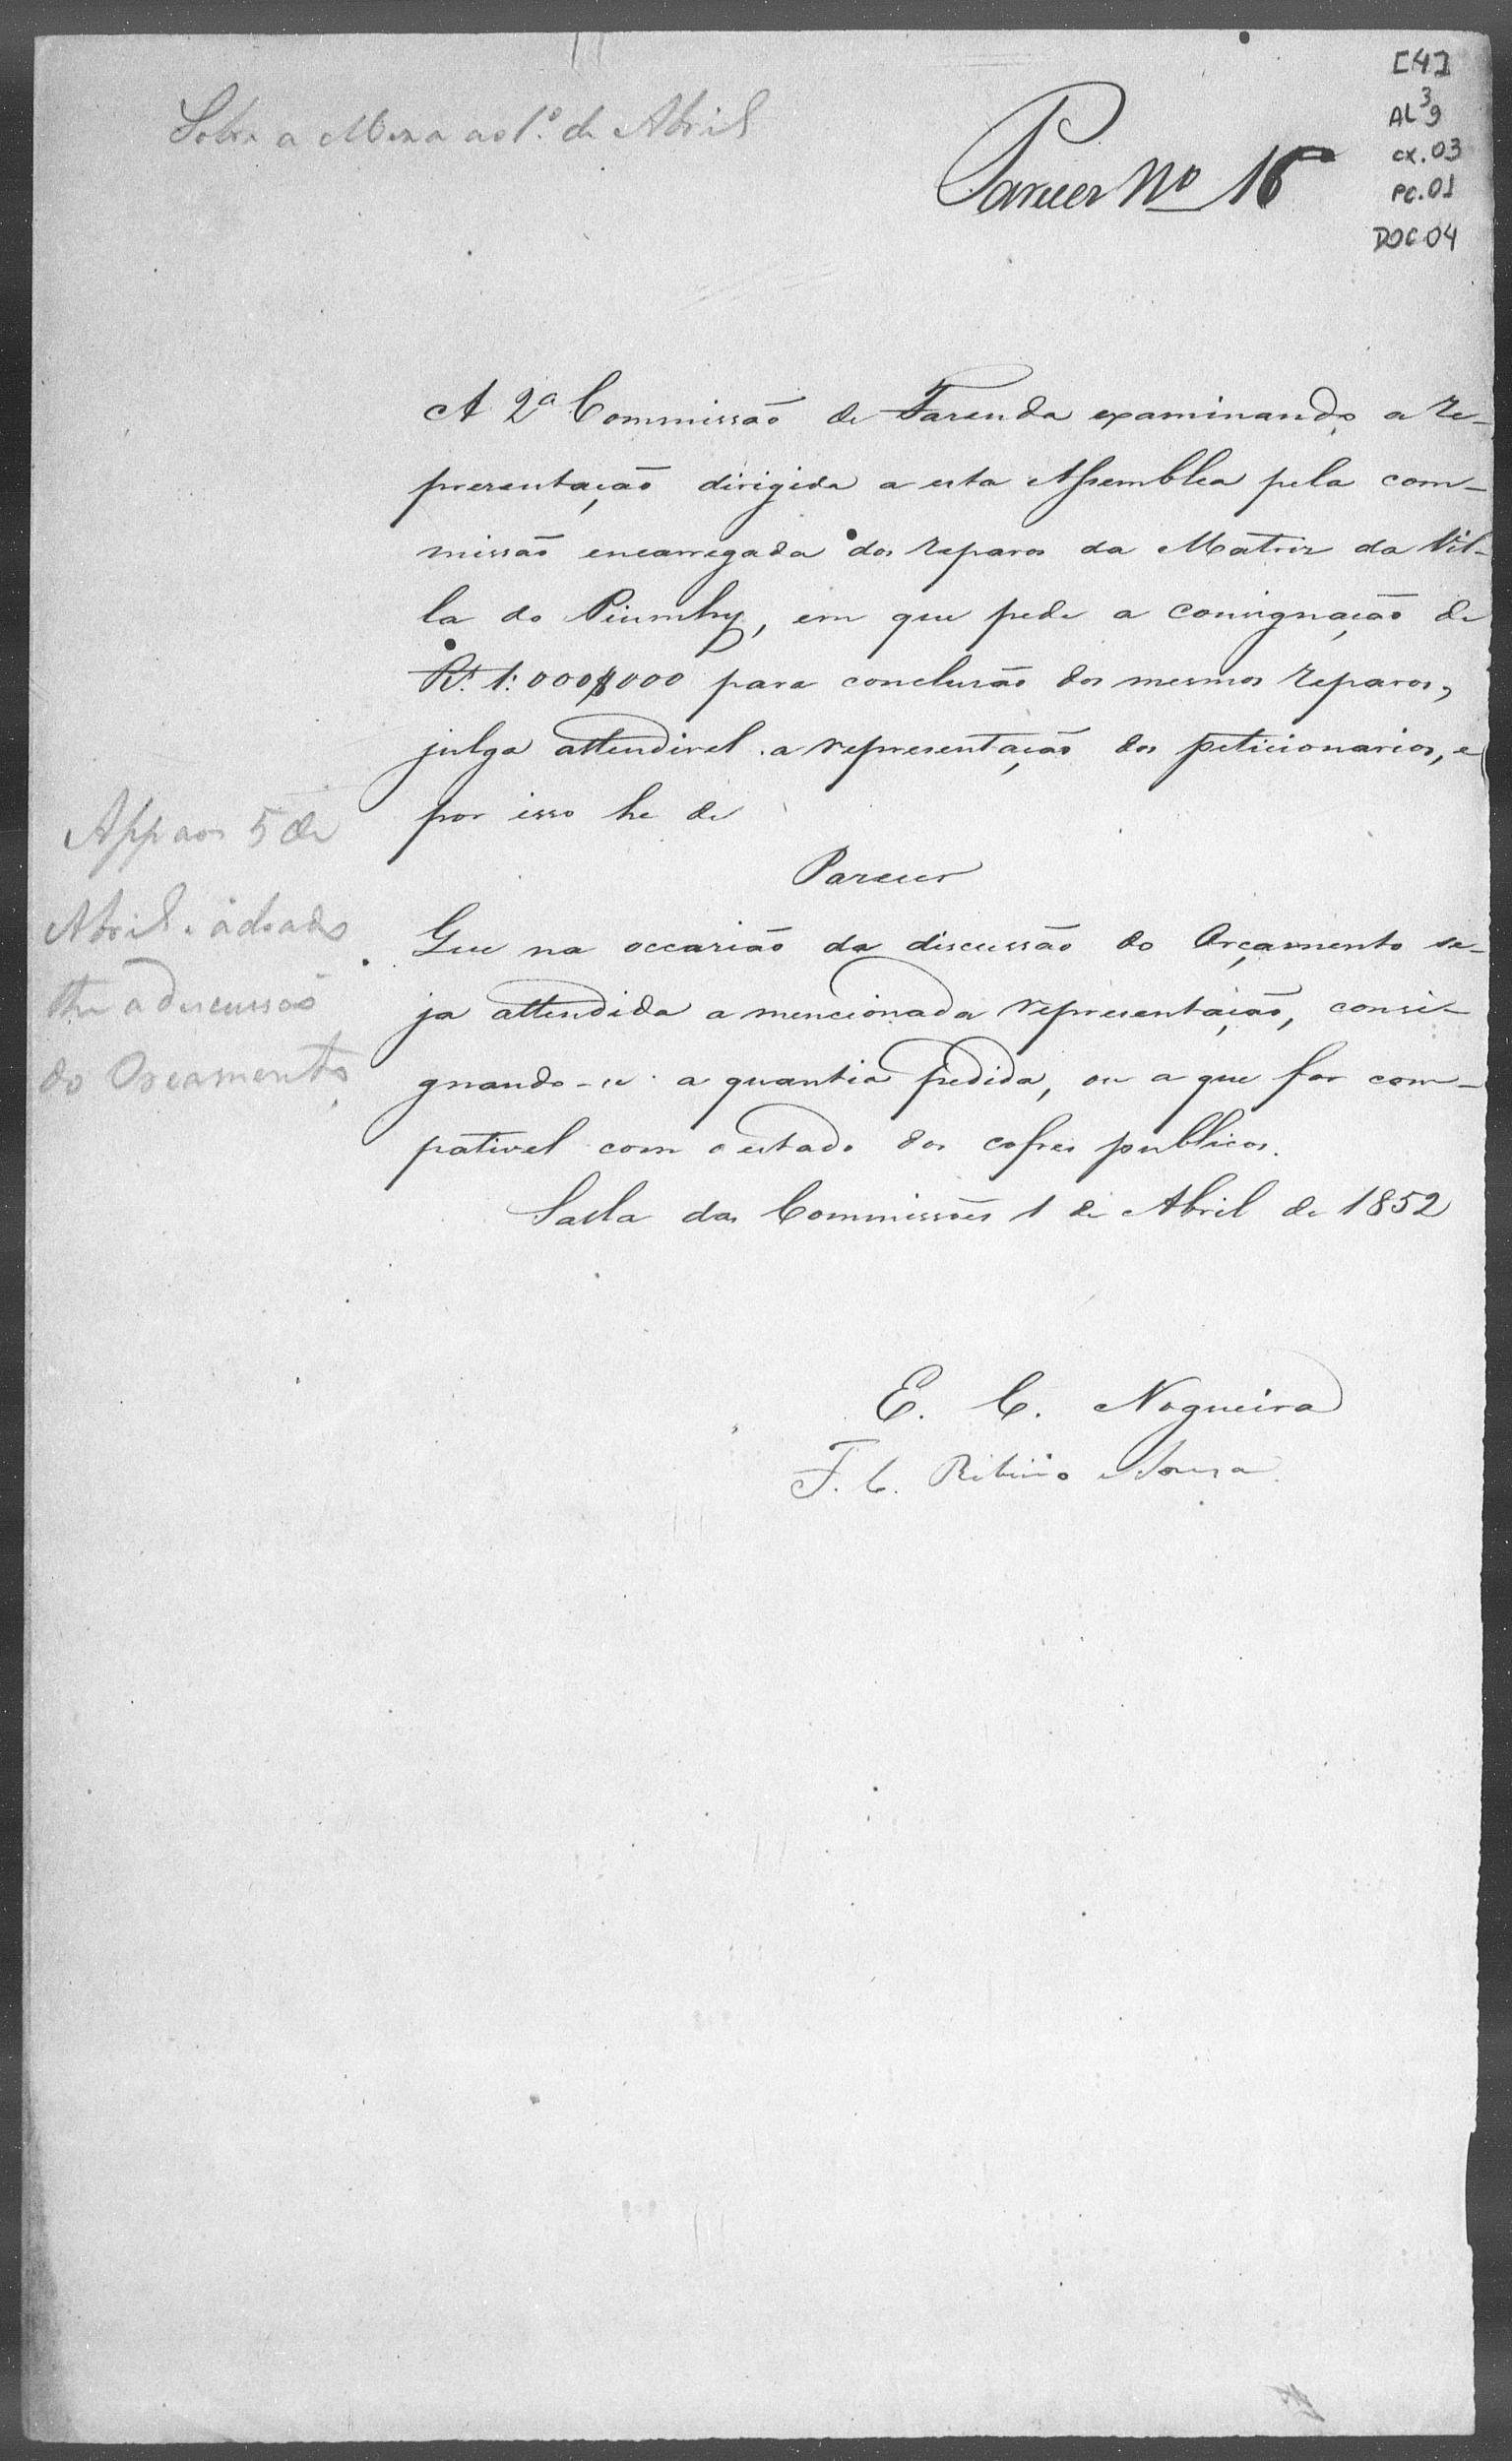 [4]
AL 3 9
cx.03
PC.01
DOC.04
Sobre a Meza ao 1.º de Abril
Parecer Nº 16
A 2ª Commissão de Fazenda examinando a re-
prezentação dirigida a esta Assemblea pela com-
missão encarregada dos reparos da Matriz da Vil-
la do Piumhy, em que pede a consignação de
Rs. 1:000$000 para conclusão dos mesmos reparos,
julga attendivel a representação dos peticionarios, e
por isso he de
Parecer
Que na occazião da discussão do Orçamento se-
ja attendida a mencionada representação, consi-
gnando-se a quantia pedida, ou a que for com-
pativel com o estado dos cofres publicos.
Salla das Commissões 1 de Abril de 1852
E. C. Nogueira
F. C. Ribeiro
App aos 5 de
Abril e adiado
the a discussão
do Orcamento